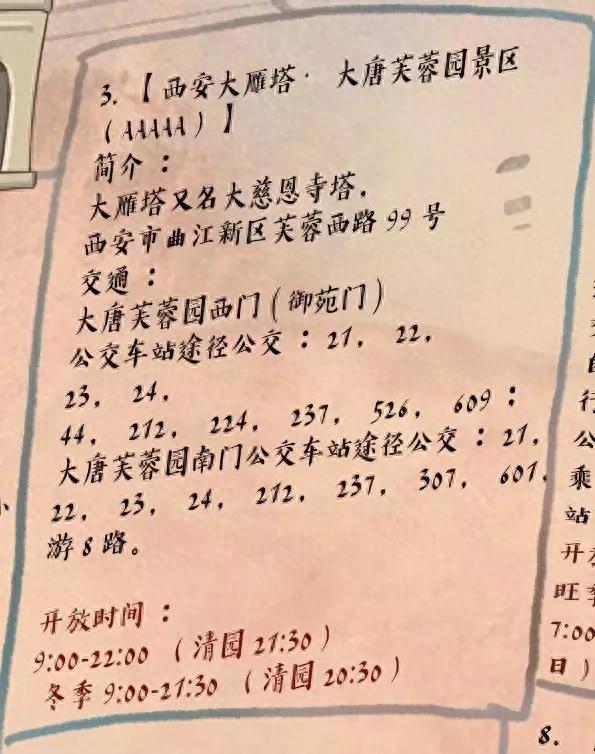 3. 【西安大雁塔· 大唐芙蓉园景区
(AAAAA)】
简介：
大雁塔又名大慈恩寺塔，
西安市曲江新区芙蓉西路 99 号
交通：
大唐芙蓉园西门(御苑门)
公交车站途径公交：21， 22，
23， 24，
44， 212， 224， 237， 526， 609；
大唐芙蓉园南门公交车站途径公交：21，
22， 23， 24， 212， 237， 307， 601，
游 8 路。
开放时间：
9:00-22:00 (清园 21:30)
冬季 9:00-21:30 (清园 20:30)
行
公
乘
站
开放
旺季
7:00
日)
8.